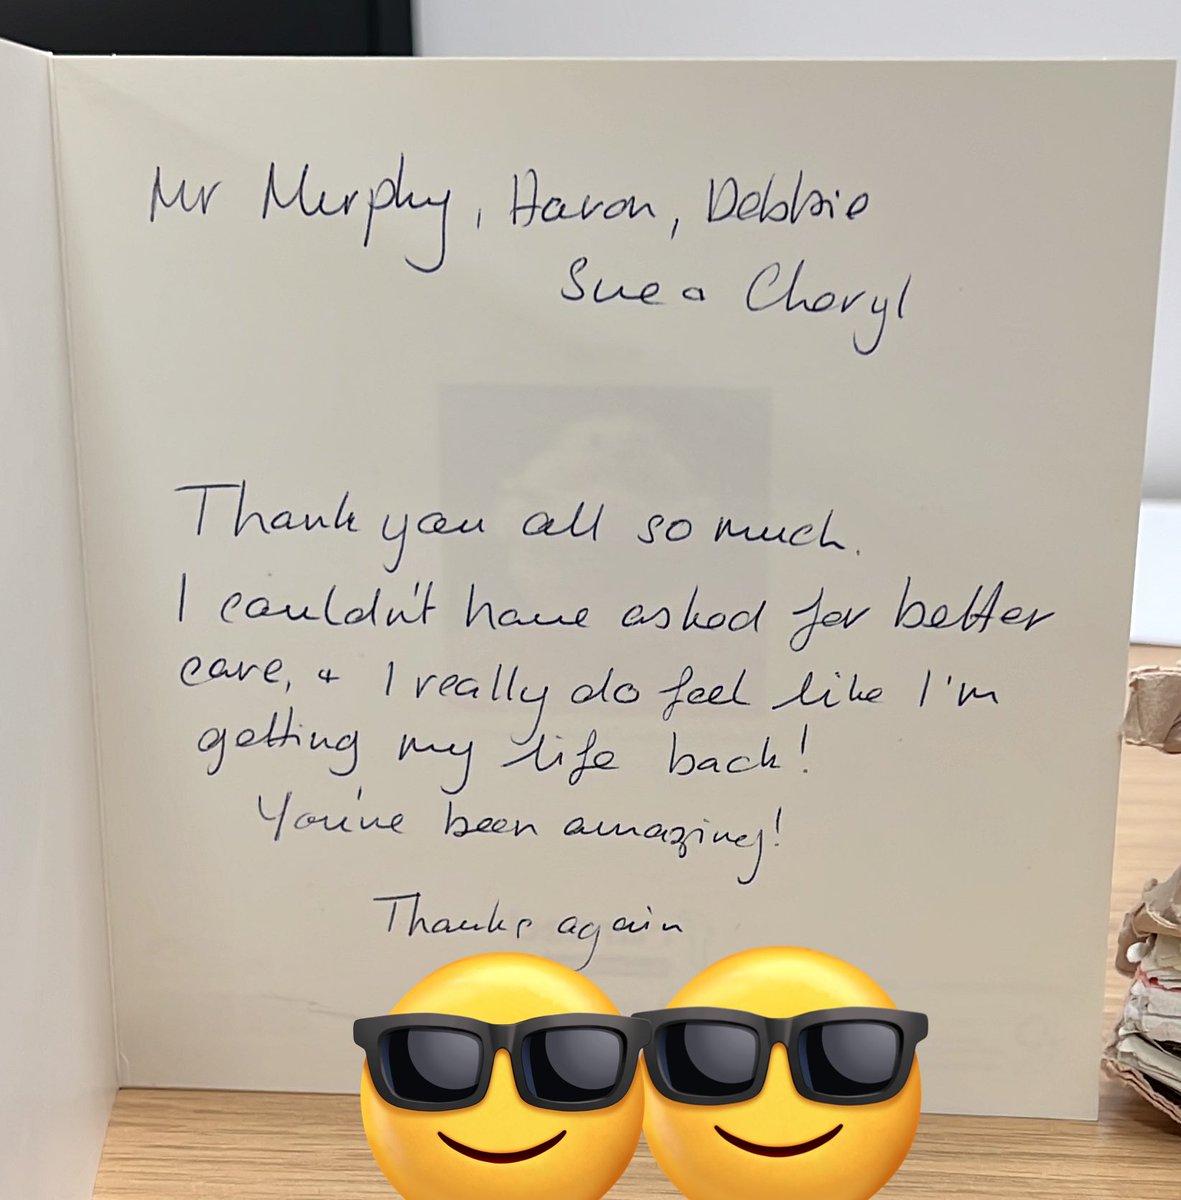 Mr Murphy, Haron, Debbie
Sue & Cheryl
Thank you all so much.
I couldn't have asked for better
care, & I really do feel like I'm
getting my life back!
You've been amazing!
Thanks again